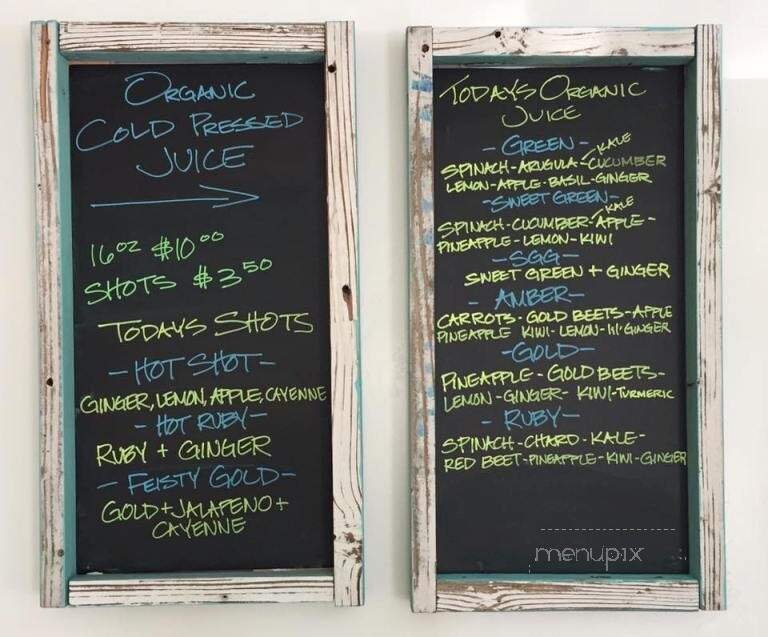 ORGANIC
COLD PRESSED
JUICE
16 OZ $10.00
SHOTS $3.50
TODAYS SHOTS
- HOT SHOT -
GINGER, LEMON, APPLE, CAYENNE
- HOT RUBY -
RUBY + GINGER
- FEISTY GOLD -
GOLD + JALAPENO +
CAYENNE
TODAYS ORGANIC
JUICE
- GREEN -
KALE
SPINACH - ARUGULA - CUCUMBER
LEMON - APPLE - BASIL - GINGER
- SWEET GREEN -
KALE
SPINACH - CUCUMBER - APPLE -
PINEAPPLE - LEMON - KIWI
- SGG -
SWEET GREEN + GINGER
- AMBER -
CARROTS - GOLD BEETS - APPLE
PINEAPPLE KIWI - LEMON - lil' GINGER
- GOLD -
PINEAPPLE - GOLD BEETS -
LEMON - GINGER - KIWI - TURMERIC
- RUBY -
SPINACH - CHARD - KALE -
RED BEET - PINEAPPLE - KIWI - GINGER
menupix